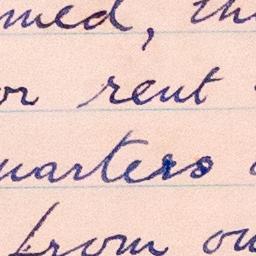 med, th
or rent
uarters
from ou